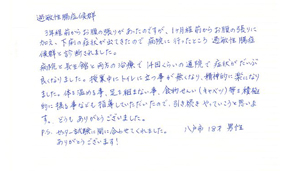 過敏性腸症候群
3年程前からお腹の張りがあったのですが、1ヶ月程前からお腹の張りに
加え、下痢の症状が出てきたので病院に行ったところ過敏性腸症
候群と診断されました。
病院と長生館と両方の治療で1ヶ月くらいの通院で症状がだいぶ
良くなりました。授業中にトイレに立つ事が無くなり、精神的に楽になり
ました。体を温める事、足を組まない事、食物せんい(キャベツ)等を積極
的に採る事なども指導していただいたので、引き続きやっていこうと思いま
す。どうもありがとうございました。
P.S. センター試験に間に合わせてくれました。
ありがとうございます!
八戸市 18才 男性